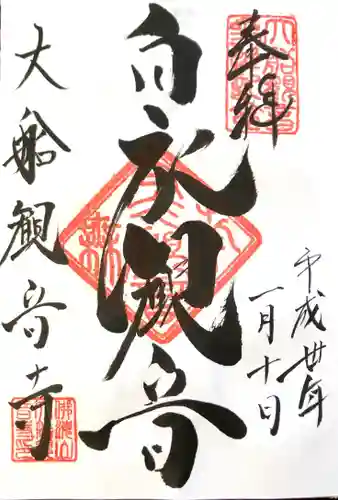 奉拝
平成卅年
一月十日
白衣観音
大船観音寺